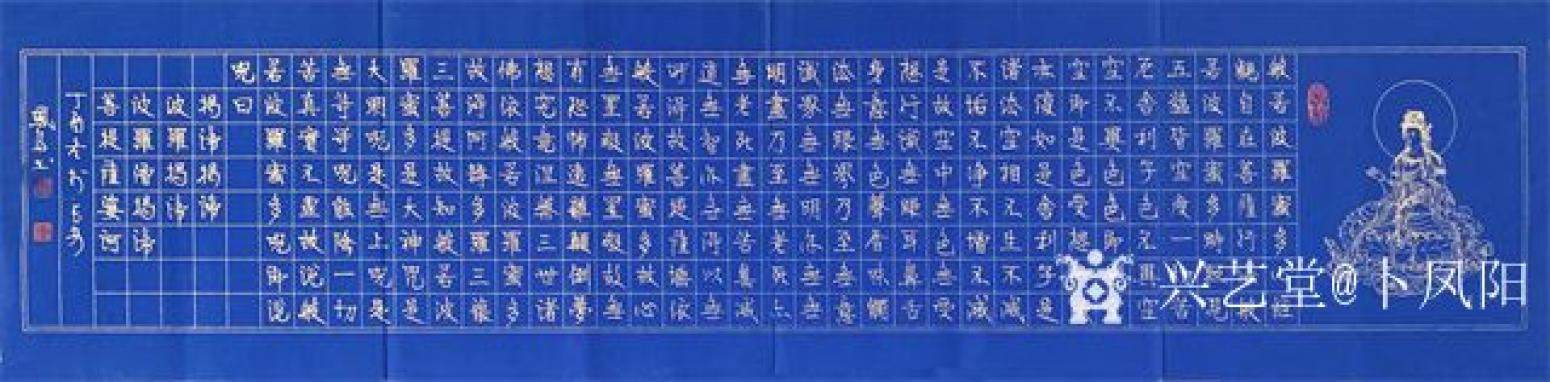 般若波羅蜜多心經
觀自在菩薩行深般
若波羅蜜多時照見
五蘊皆空度一切苦
厄舍利子色不異空
空不異色色即是空
空即是色受想行識
亦復如是舍利子是
諸法空相不生不滅
不垢不淨不增不減
是故空中無色無受
想行識無眼耳鼻舌
身意無色聲香味觸
法無眼界乃至無意
識界無無明亦無無
明盡乃至無老死亦
無老死盡無苦集滅
道無智亦無得以無
所得故菩提薩埵依
般若波羅蜜多故心
無罣礙無罣礙故無
有恐怖遠離顛倒夢
想究竟涅槃三世諸
佛依般若波羅蜜多
故得阿耨多羅三藐
三菩提故知般若波
羅蜜多是大神咒是
大明呪是無上呪是
無等等呪能除一切
苦真實不虛故說般
若波羅蜜多呪即說
呪曰
揭諦揭諦
波羅揭諦
波羅僧揭諦
菩提薩婆訶
丁酉
兴艺堂@卜凤阳